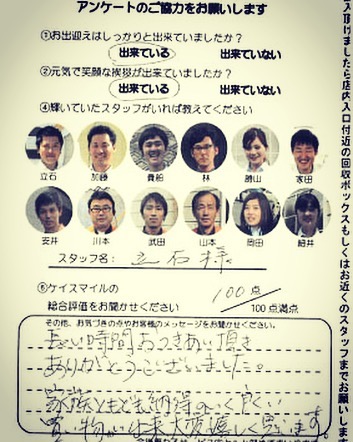 アンケートのご協力をお願いします
①お出迎えはしっかりと出来ていましたか？
出来ている 出来ていない
②元気で笑顔な挨拶が出来ていましたか？
出来ている 出来ていない
④輝いていたスタッフがいれば教えてください
立石 加藤 貴船 林 勝山 家田
安井 川本 武田 山本 岡田 細井
スタッフ名： 立石様
⑥ケイスマイルの
総合評価をお聞かせください 100点／100点満点
その他、お気づきの点やお客様のメッセージをお聞かせください
長い時間おつきあい頂き
ありがとうございました。
家族ともども納得のいく良い
買い物が出来大変嬉しく思います。
入頂けましたら店内入口付近の回収ボックスもしくはお近くのスタッフまでお願いしま